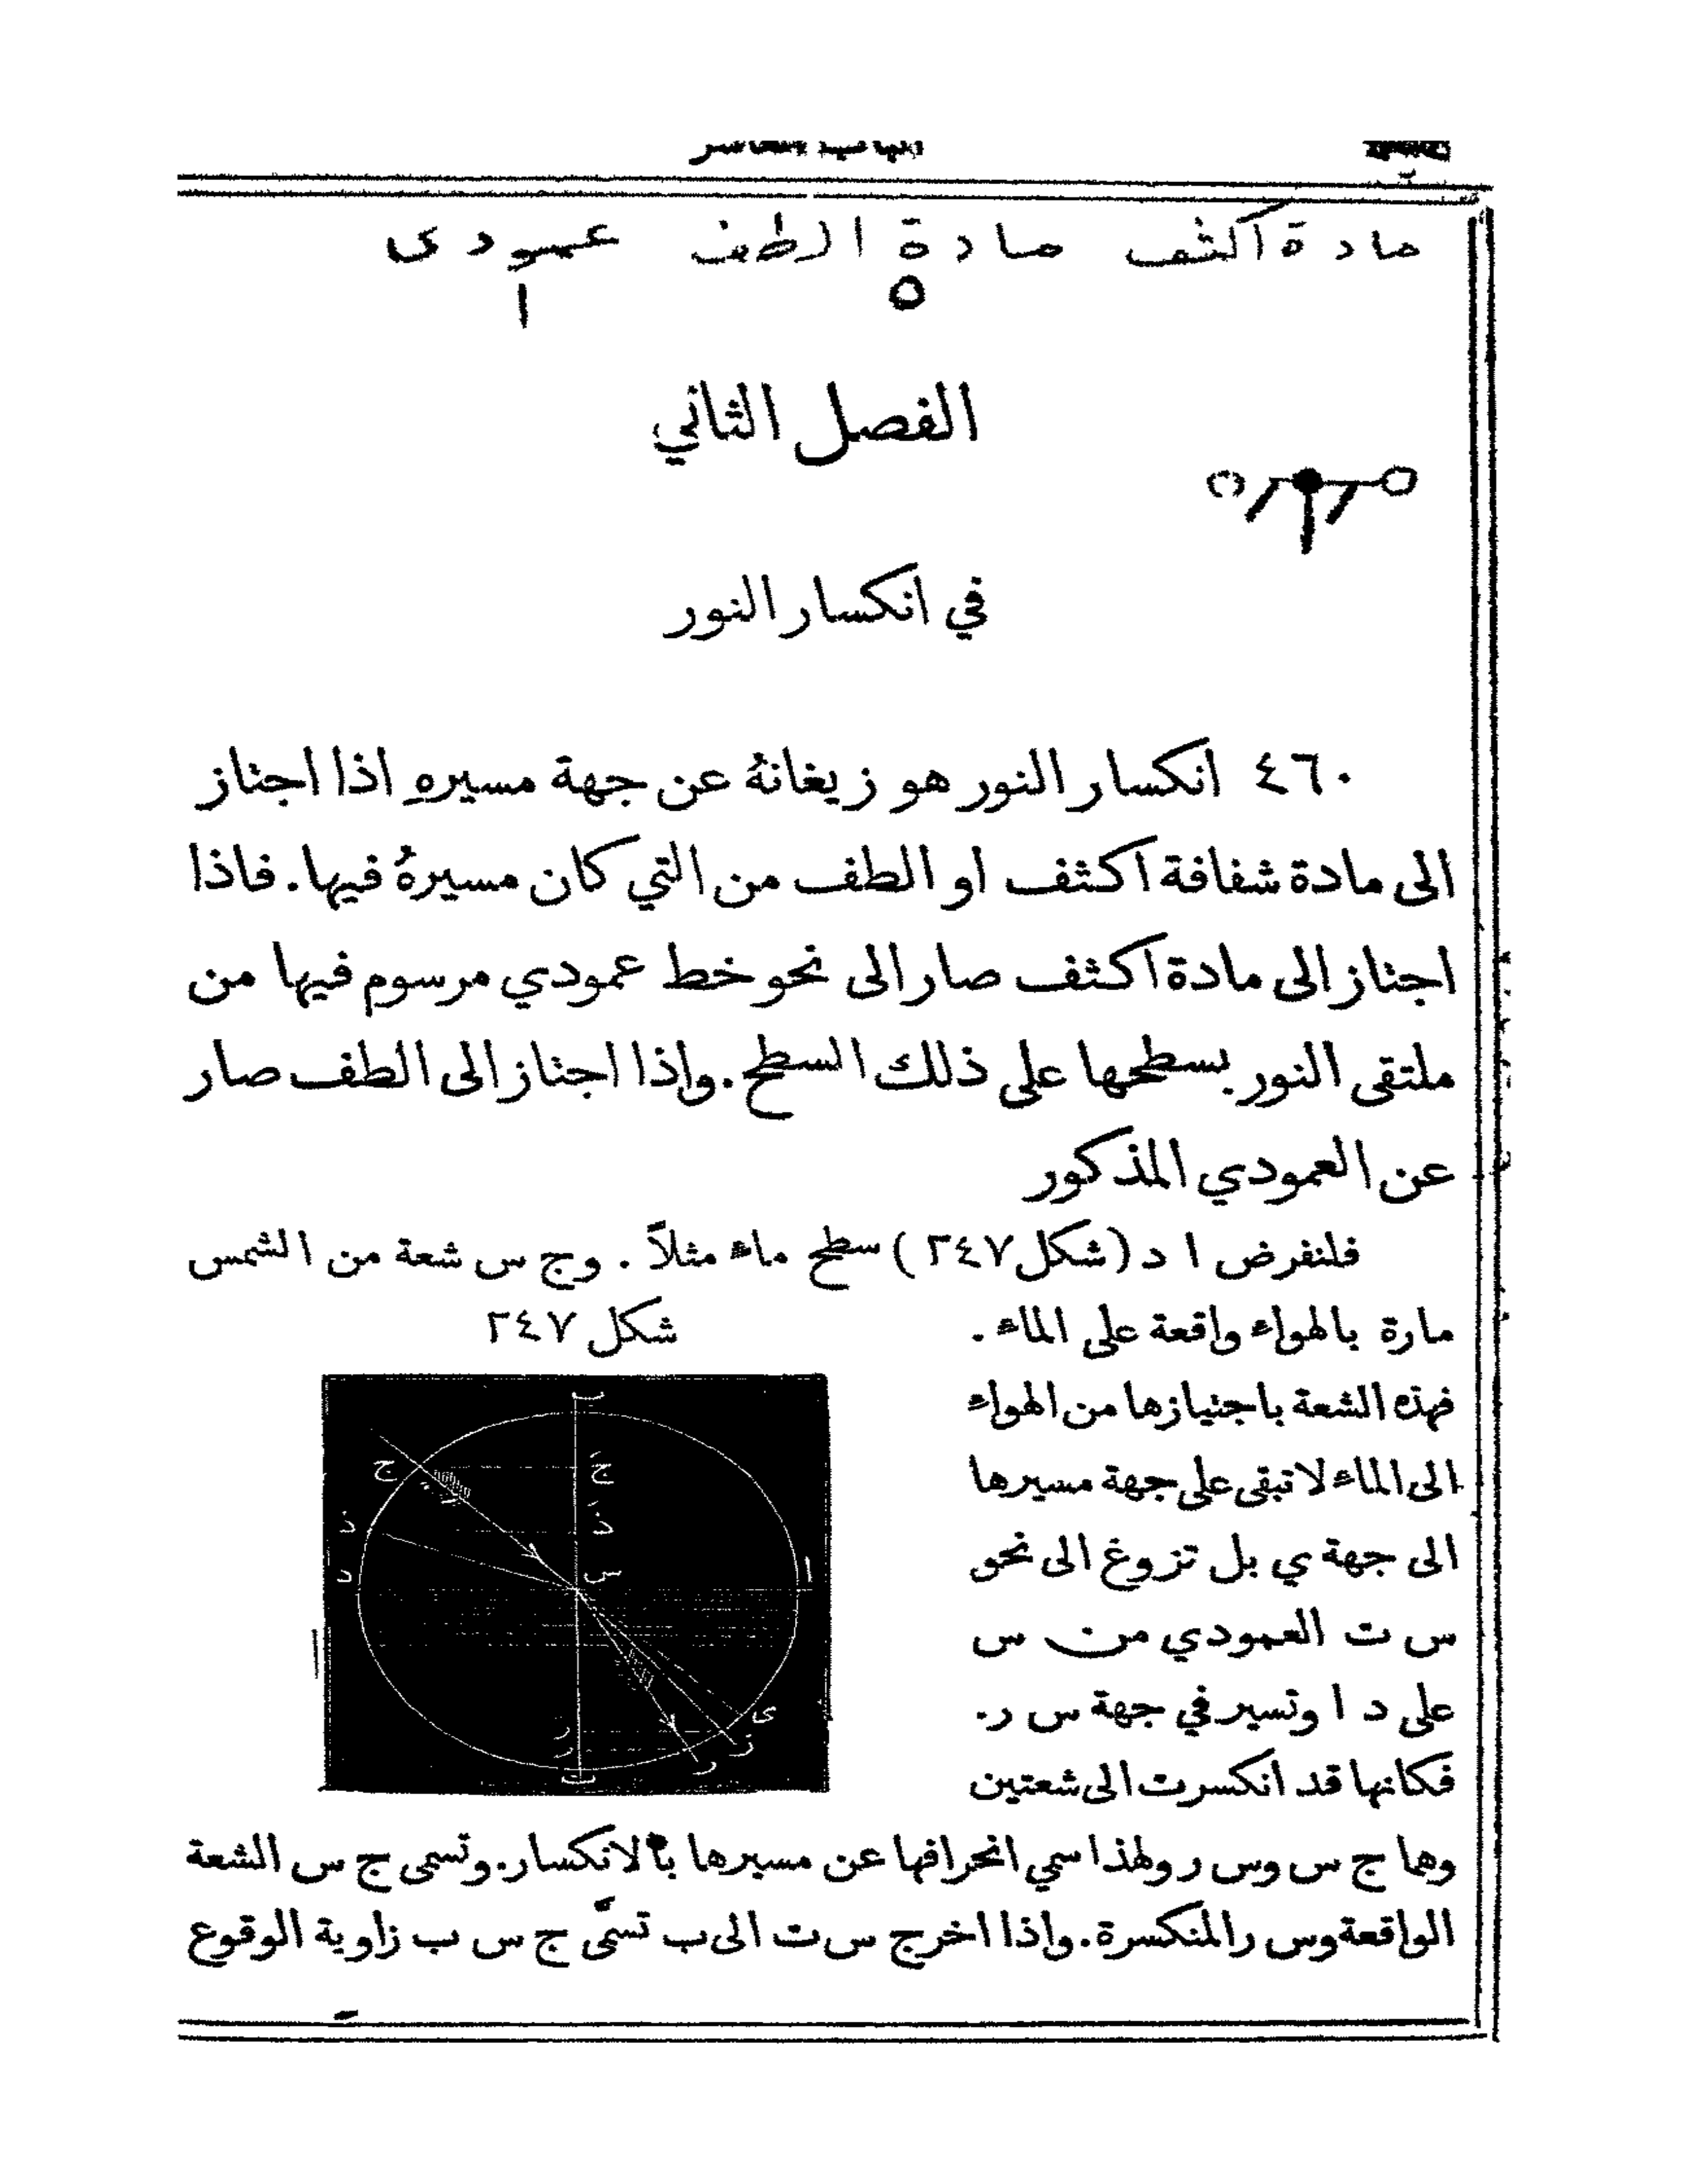 الباب العاشر
مادة اكثف مادة الطف عمودى
ا ٥
الفصل الثاني
في انكسار النور
٤٦٠ انكسار النور هو زيغانهُ عن جهة مسيرهِ اذا اجتاز
الى مادة شفافة اكثف او الطف من التي كان مسيرهُ فيها. فاذا
اجتاز الى مادة اكثف صار الى نحو خط عمودي مرسوم فيها من
ملتقى النور بسطحها على ذلك السطح. واذا اجتاز الى الطف صار
عن العمودي المذكور
فلنفرض ا د (شكل ٢٤٧) سطح ماء مثلاً. وج س شعة من الشمس
مارة بالهواء واقعة على الماء.
فهذه الشعة باجتيازها من الهواء
الى الماء لا تبقى على جهة مسيرها
الى جهة ي بل تزوغ الى نحو
س ت العمودي من س
على د ا وتسير في جهة س ر.
فكانها قد انكسرت الى شعتين
شكل ٢٤٧
ب
ج جَ
ذ ذَ
د س ا
ى
ر ز
ر ر
ت
وهما ج س وس ر ولهذا سمي انحرافها عن مسيرها بالانكسار. وتسمى ج س الشعة
الواقعة وس ر المنكسرة. واذا اخرج س ت الى ب تسمَّى ج س ب زاوية الوقوع